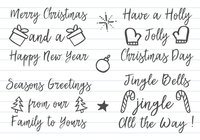 Merry Christmas
and a
Happy New Year
Have a Holly
Jolly
Christmas Day
Seasons Greetings
from our
Family to Yours
Jingle Bells
jingle
All the Way !